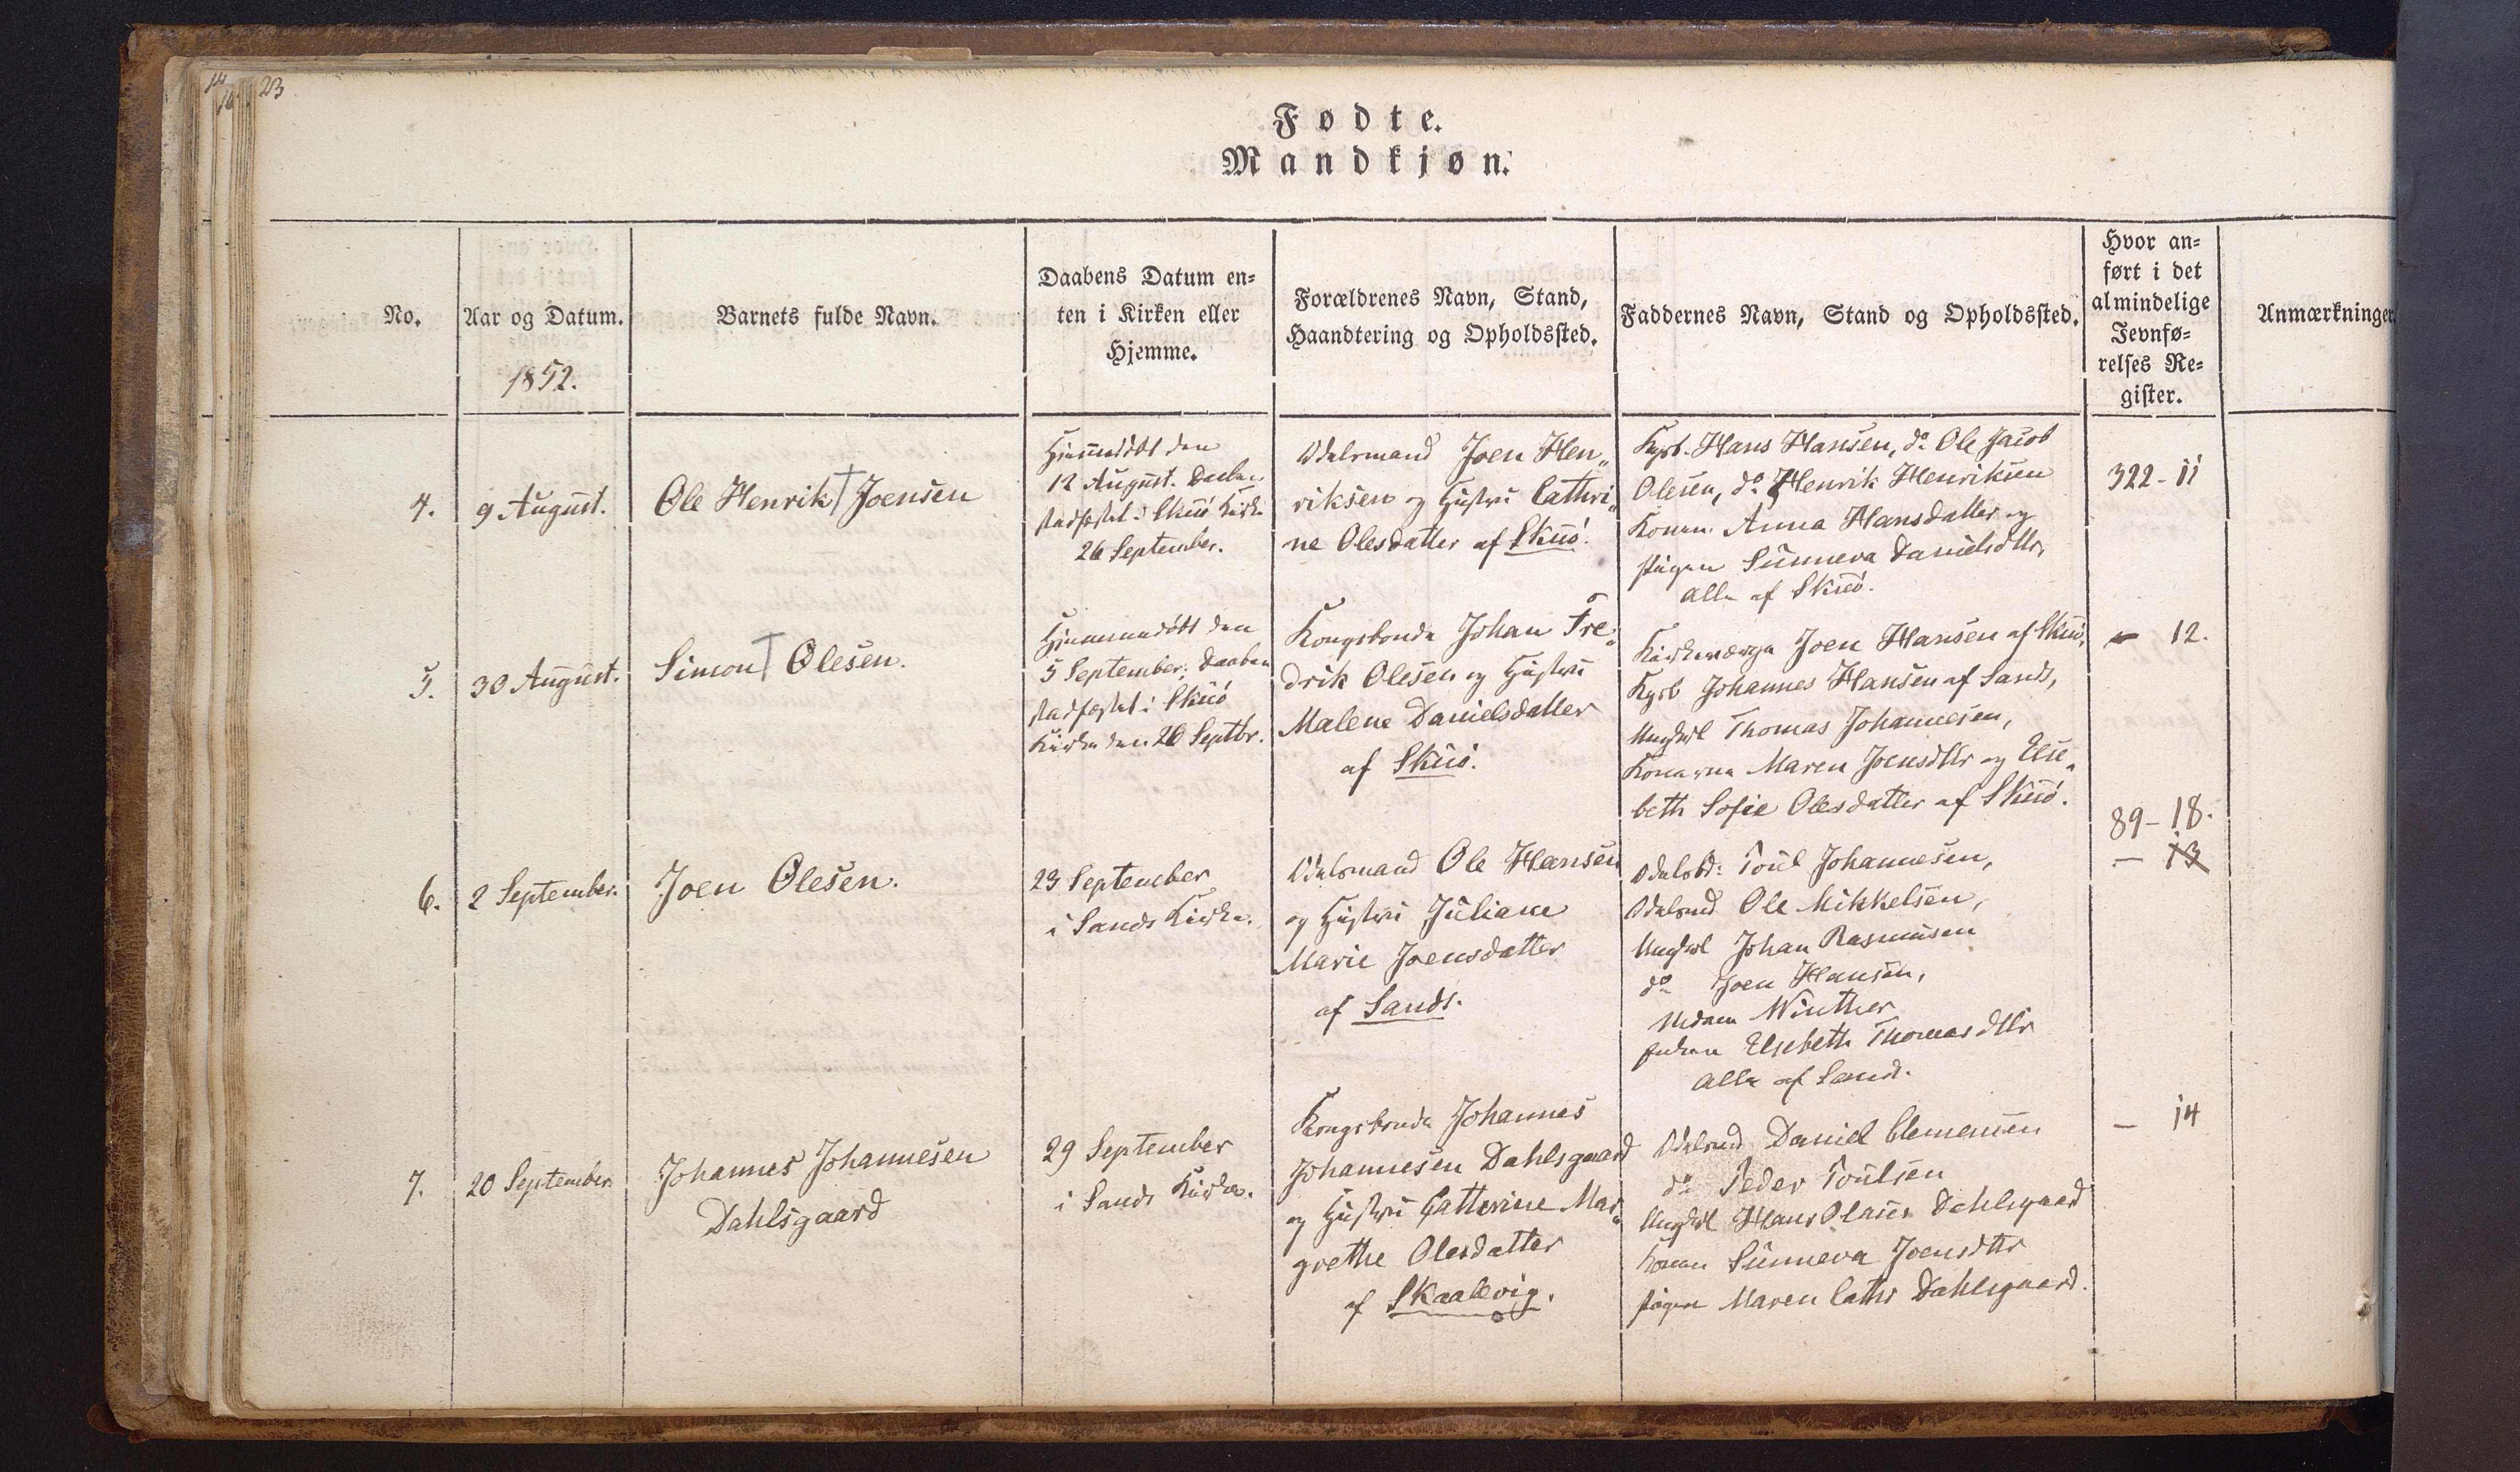 23
Fødte.
Mandkjøn.
No.
Aar og Datum.
1852.
Barnets fulde Navn.
Daabens Datum en=
ten i Kirken eller
Hjemme.
Forældrenes Navn, Stand,
Haandtering og Opholdssted.
Faddernes Navn, Stand og Opholdssted.
Hvor an=
ført i det
almindelige
Jevnfø=
relses Re=
gister.
Anmærkninger.
4.
9 August.
Ole Henrik Joensen
Hjemmedöbt den
12 August. Daaben
stadfæstet i Skuö Kirke
26 September.
Odelsmand Joen Hen„
riksen og Hustru Cathri„
ne Olesdatter af Skuö.
Kgsb. Hans Hansen, do. Ole Jacob
Olesen, do. Henrik Henriksen
Konen Anna Hansdatter og
Pigen Sunneva Danielsdttr,
alle af Skuö.
322-11
5.
30 August.
Simon Olesen.
Hjemmedöbt den
5 September; Daaben
stadfæstet i Skuö
Kirke den 26 Septbr.
Kongsbonde Johan Fre„
drik Olesen og Hustru
Malene Danielsdatter
af Skuö.
Kirkeværge Joen Hansen af Skuö,
Kgsb Johannes Hansen af Sand,
Ungkrl Thomas Johannesen,
Konerne Maren Joensdttr og Else„
beth Sofie Olesdatter af Skuö.
- 12.
6.
2 September.
Joen Olesen.
23 September
i Sands Kirke.
Odelsmand Ole Hansen
og Hustru Juliane
Marie Joensdatter
af Sand.
Odelsbd: Poul Johannesen,
Odelsmd Ole Mikkelsen,
Ungkrl Johan Rasmusen
do Joen Hansen,
Madam Winther
Enken Elsebeth Thomasdttr
alle af Sand.
89-18.
- 13
7.
20 September.
Johannes Johannesen
Dahlsgaard
29 September
i Sands Kirke.
Kongsbonde Johannes
Johannesen Dahlsgaard
og Hustru Cathrine Mar„
grethe Olesdatter
af Skaalevig.
Odelsmd Daniel Clemensen
do Peder Poulsen
Ungkrl Hans Olaus Dahlsgaard
Konen Sunneva Joensdttr
Pigen Maren Cathr Dahlsgaard.
- 14